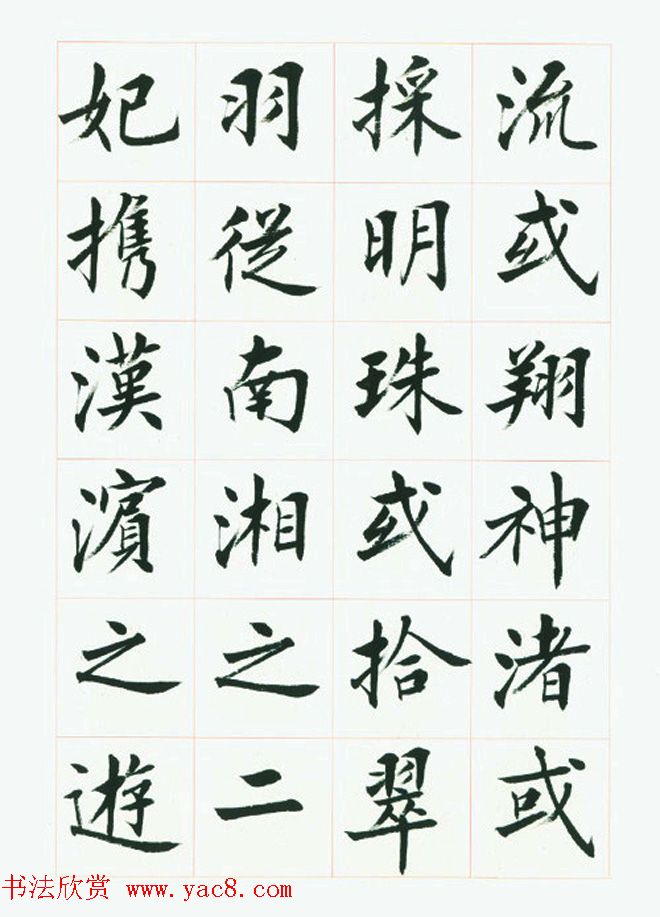 流或翔神渚或
採明珠或拾翠
羽從南湘之二
妃携漢濱之遊
书法欣赏 www.yac8.com